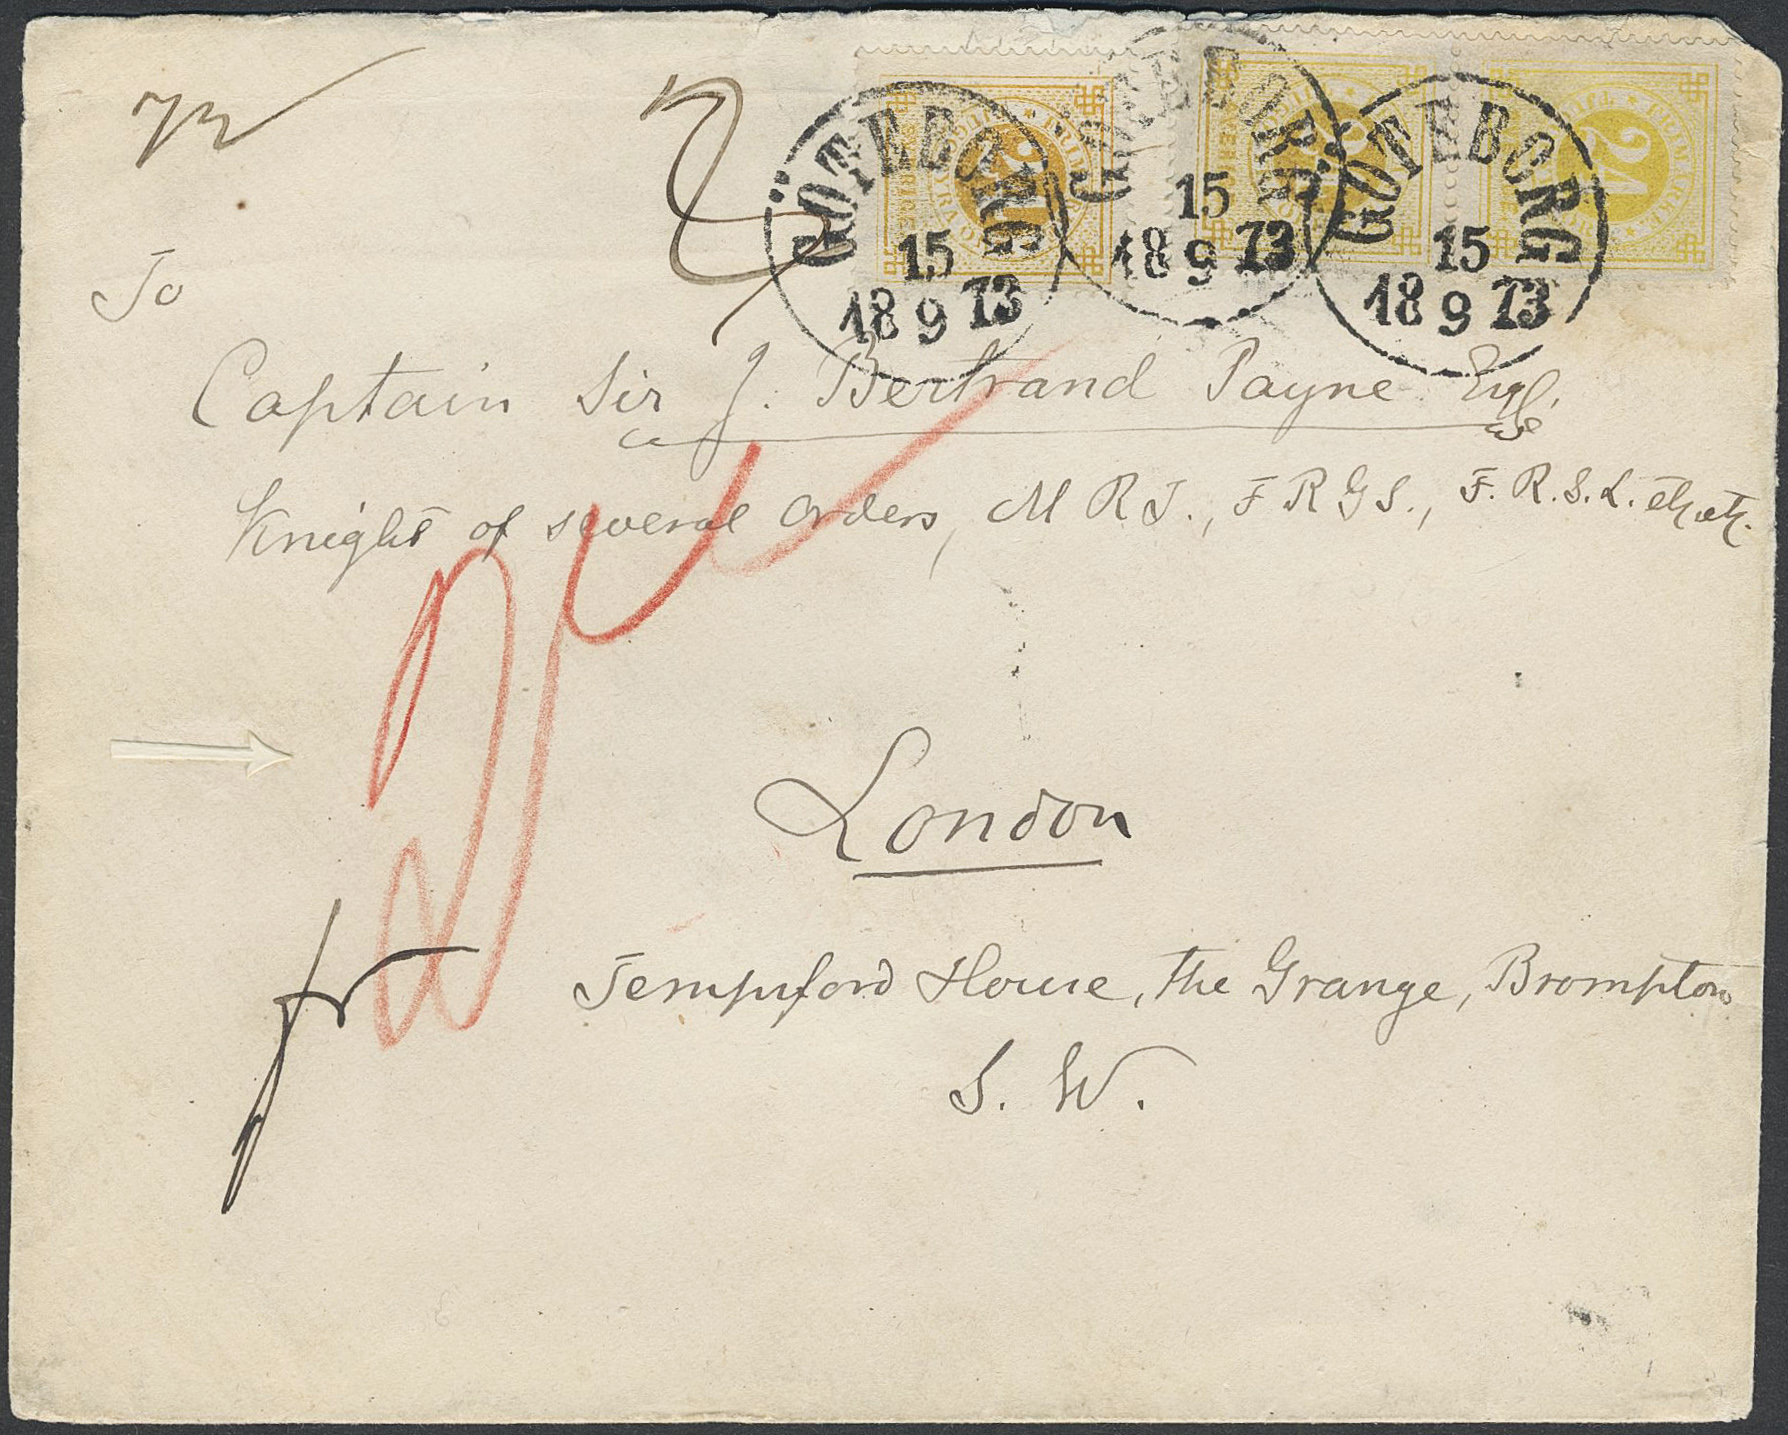 72
GÖTEBORG
15
18 9 73
GÖTEBORG
15
18 9 73
GÖTEBORG
15
18 9 73
24
To
Captain Sir J. Bertrand Payne Esqr.
Knight of several Orders, M R I., F R G S., F. R. S. L. etc. etc.
London
fr
Tempsford House, the Grange, Brompton
S. W.